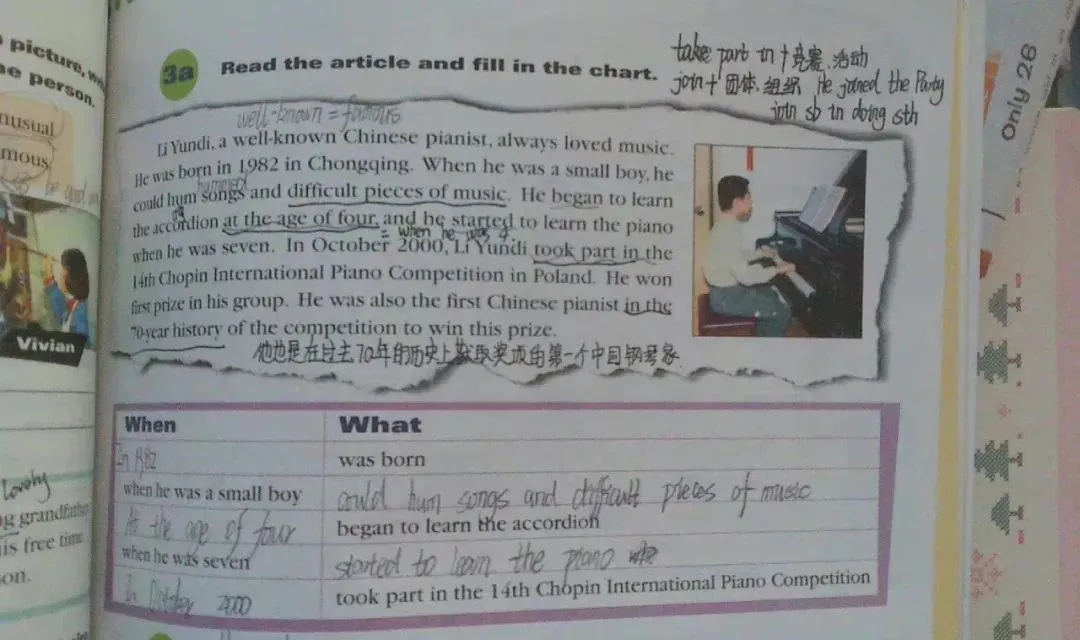 picture,
he person.
nusual
mous
Vivian
lovely
g grandfather
is free time
on.
3a Read the article and fill in the chart.
take part in + 竞赛、活动
join + 团体、组织 He joined the Party
join sb in doing sth
only 26
well-known = famous
Li Yundi, a well-known Chinese pianist, always loved music.
He was born in 1982 in Chongqing. When he was a small boy, he
hummed
could hum songs and difficult pieces of music. He began to learn
the accordion at the age of four, and he started to learn the piano
= when he was 4.
when he was seven. In October 2000, Li Yundi took part in the
14th Chopin International Piano Competition in Poland. He won
first prize in his group. He was also the first Chinese pianist in the
70-year history of the competition to win this prize.
他也是在过去70年的历史上获取奖项的第一个中国钢琴家
When What
In 1982 was born
when he was a small boy could hum songs and difficult pieces of music
At the age of four began to learn the accordion
when he was seven started to learn the piano
In October 2000 took part in the 14th Chopin International Piano Competition